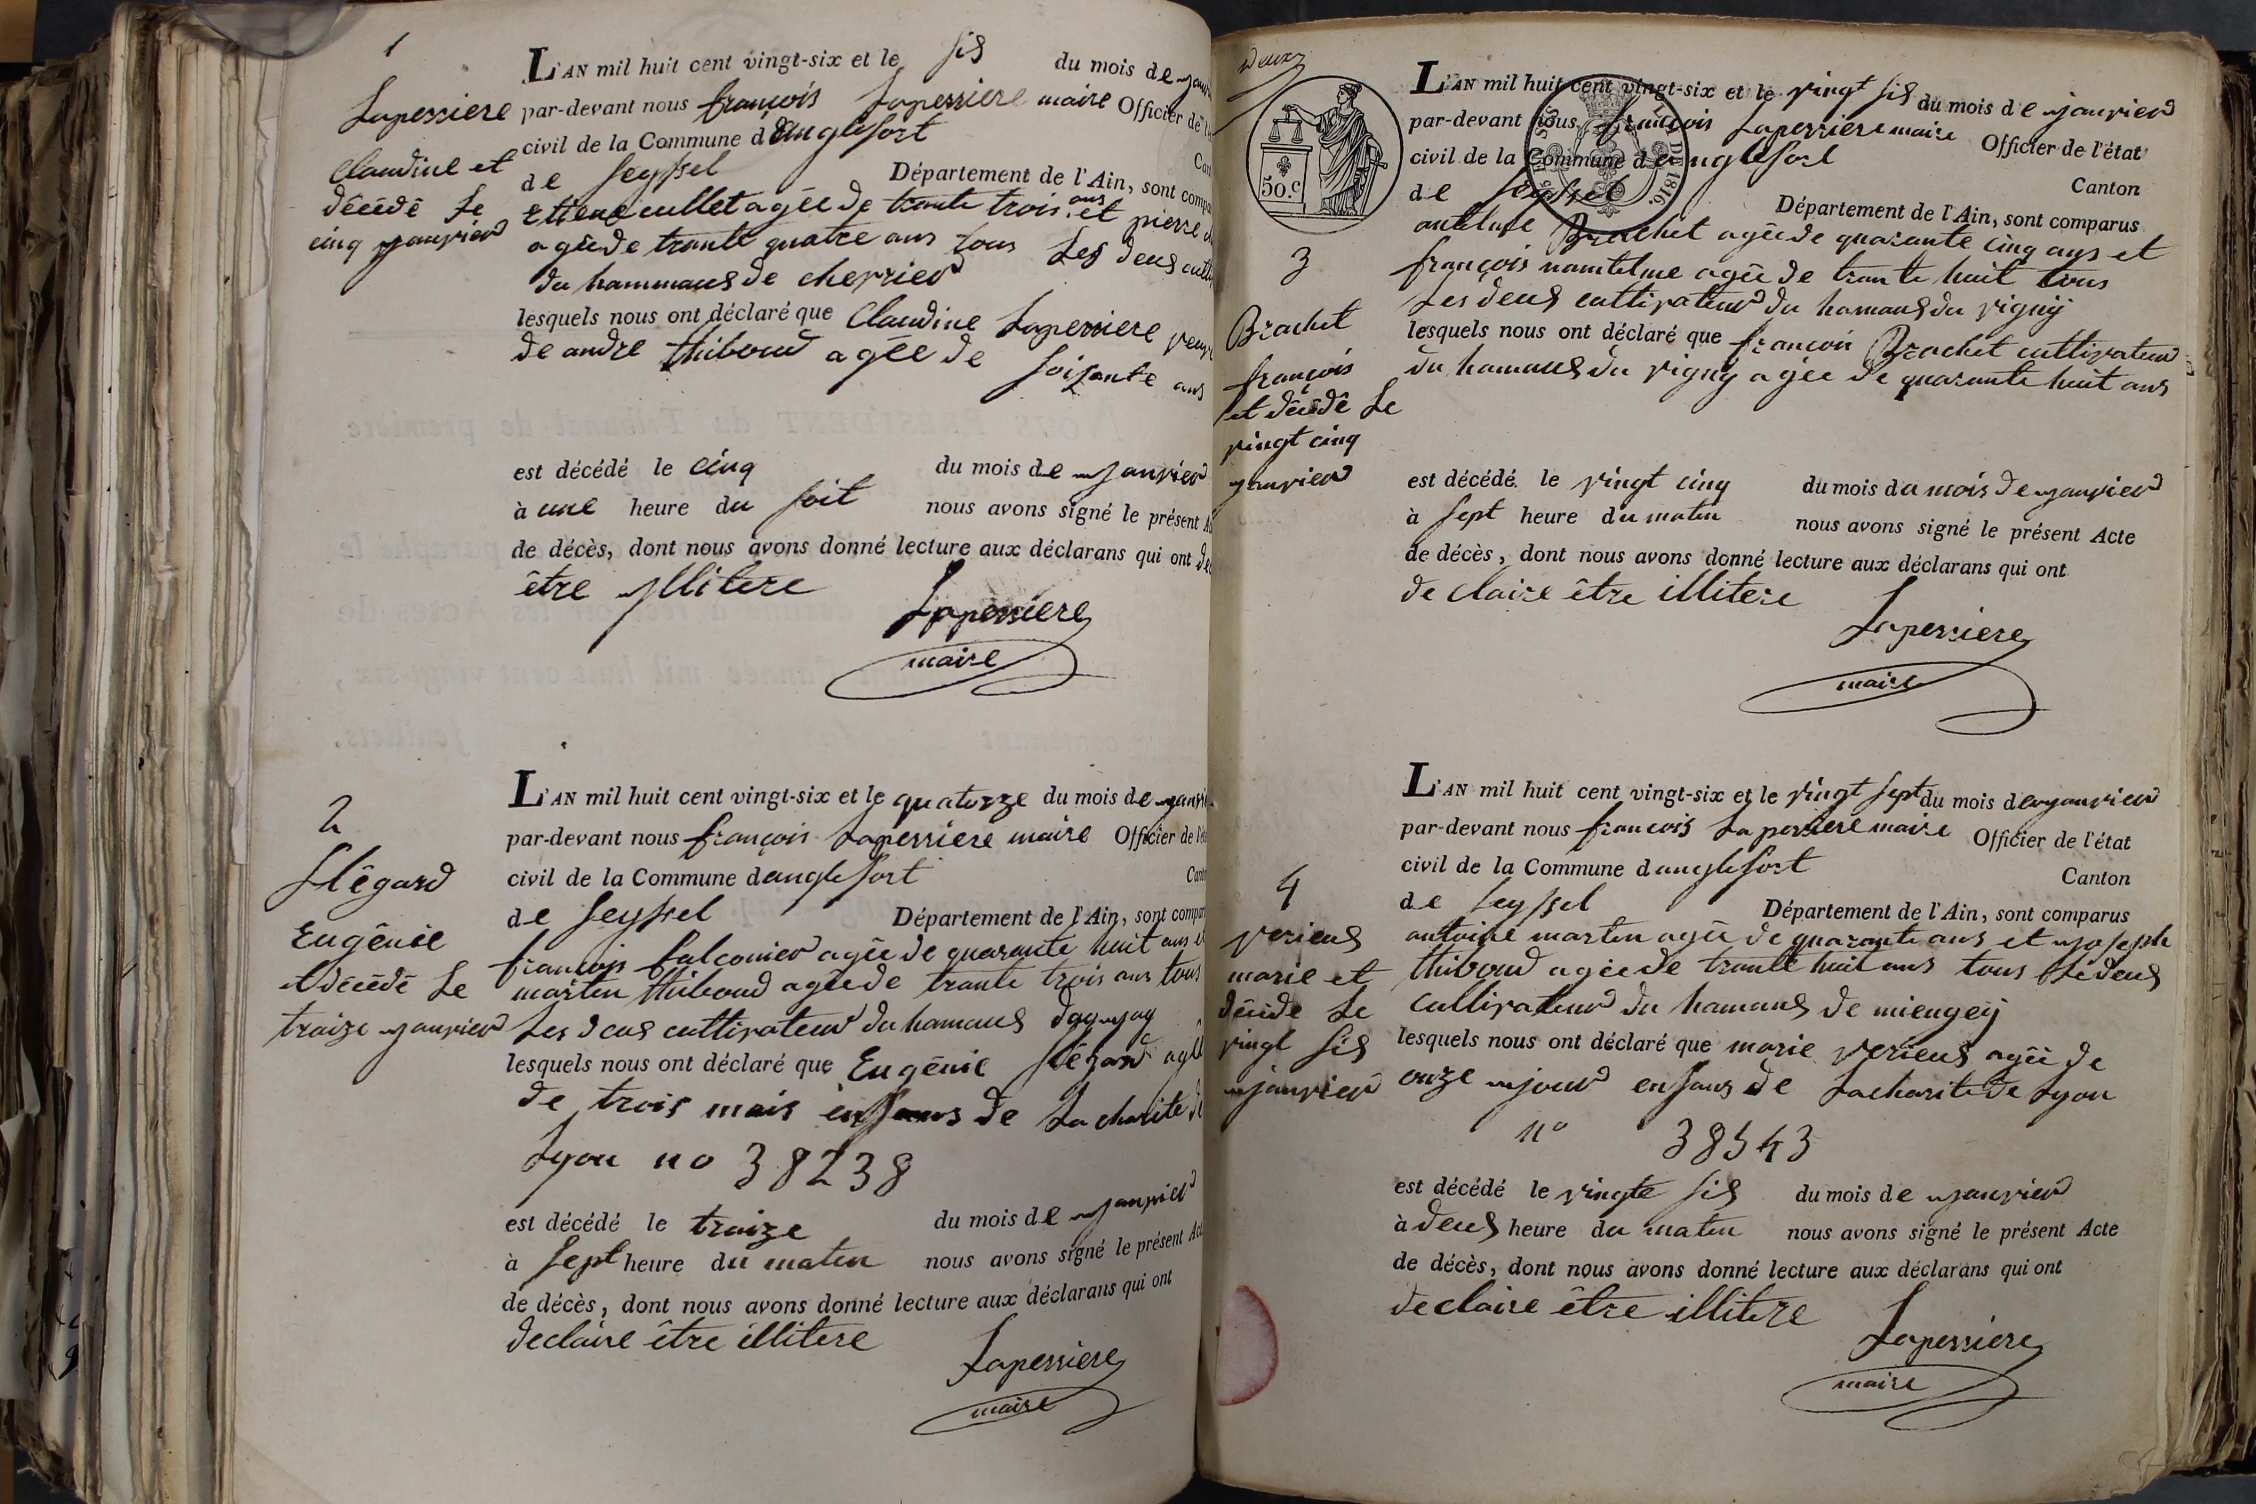 1
Laperriere
Claudine et
décédé Le
cinq janvier
L'AN mil huit cent vingt-six et le sis du mois de
par-devant nous françois Laperriere maire Officier de
civil de la Commune d'anglefort
de Seyssel
Département de l'Ain, sont
Etiene cullet agée de trante trois ans et pierre
agée de trante quatre ans tous Les deus
du hammaus de cherrier
lesquels nous ont déclaré que Claudine Laperriere
de andre thiboud agée de soisante ans
est décédé le cinq du mois de janvier
à une heure du soit nous avons signé le présent
de décès, dont nous avons donné lecture aux déclarans qui ont
être illitere
Laperriere
maire
2
flégard
Eugênie
et décédé Le
traize janvier
L'AN mil huit cent vingt-six et le quatorze du mois de
par-devant nous françois Laperriere maire Officier de
civil de la Commune danglefort
de Seyssel
Département de l'Ain, sont
françois falconier agée de quarante huit ans et
martin thiboud agée de trante trois ans tous
Les deus cultivateur du hamaus
lesquels nous ont déclaré que Eugênie flégard
de trois mais enfans de La charite
Lyon no 38238
est décédé le traize du mois de janvier
à sept heure du maten nous avons signé le présent
de décès, dont nous avons donné lecture aux déclarans qui ont
declaire être illitere
Laperriere
maire
deux
50.c
3
Brachet
françois
et décédé Le
vingt cinq
janvier
L'AN mil huit cent vingt-six et le vingt sis du mois de janvier
par-devant nous françois Laperriere maire Officier de l'état
civil de la Commune danglefort
Canton
de Seyssel
Département de l'Ain, sont comparus
antelme Brachet agée de quarante cinq ans et
françois nantelme agée de trante huit tous
Les deus cultivateur du hamaus du vigny
lesquels nous ont déclaré que françois Brachet cultivateur
du hamaus du vigny agée de quarante huit ans
est décédé le vingt cinq du mois du mois de janvier
à sept heure du maten nous avons signé le présent Acte
de décès, dont nous avons donné lecture aux déclarans qui ont
de claire être illitere
Laperriere
maire
4
veriens
marie et
décidé Le
vingt sis
janvier
L'AN mil huit cent vingt-six et le vingt sept du mois de janvier
par-devant nous françois Laperriere maire Officier de l'état
civil de la Commune danglefort
Canton
de Seyssel
Département de l'Ain, sont comparus
antoine marten agée de quarante ans et joseph
thiboud agée de trante huit ans tous Le deus
cultivateur du hamaus de miengeÿ
lesquels nous ont déclaré que marie veriens agée de
onze jour enfans de Lacharite de Lyon
no 38543
est décédé le vingte sis du mois de janvier
à deus heure du maten nous avons signé le présent Acte
de décès, dont nous avons donné lecture aux déclarans qui ont
declaire être illitere
Laperriere
maire